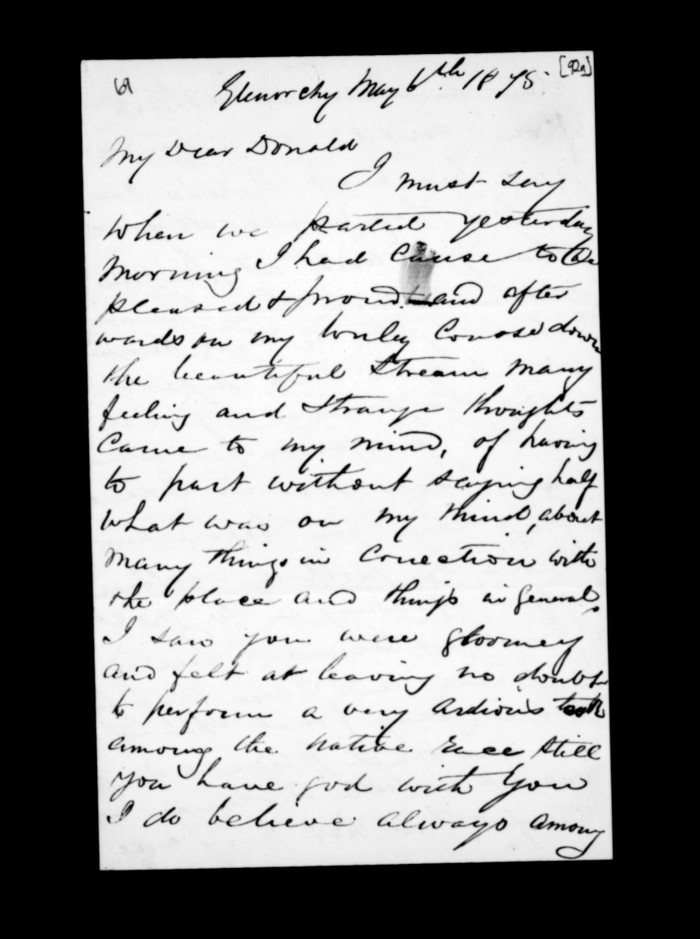 69 [92a]
Glenorchy May 6th 1875.
My Dear Donald
I must say
When we parted yesterday
Morning I had Cause to be
pleased & proud and after
wards on my lonley Course down
the beautiful Stream many
feeling and strange thoughts
Came to my mind, of having
to part without saying half
What was on my mind, about
Many things in Conection with
the place and things in General,
I saw you were gloomey
and felt at leaving no doubt
to perform a very Ardious task
among the native race still
you have god with you
I do believe always among